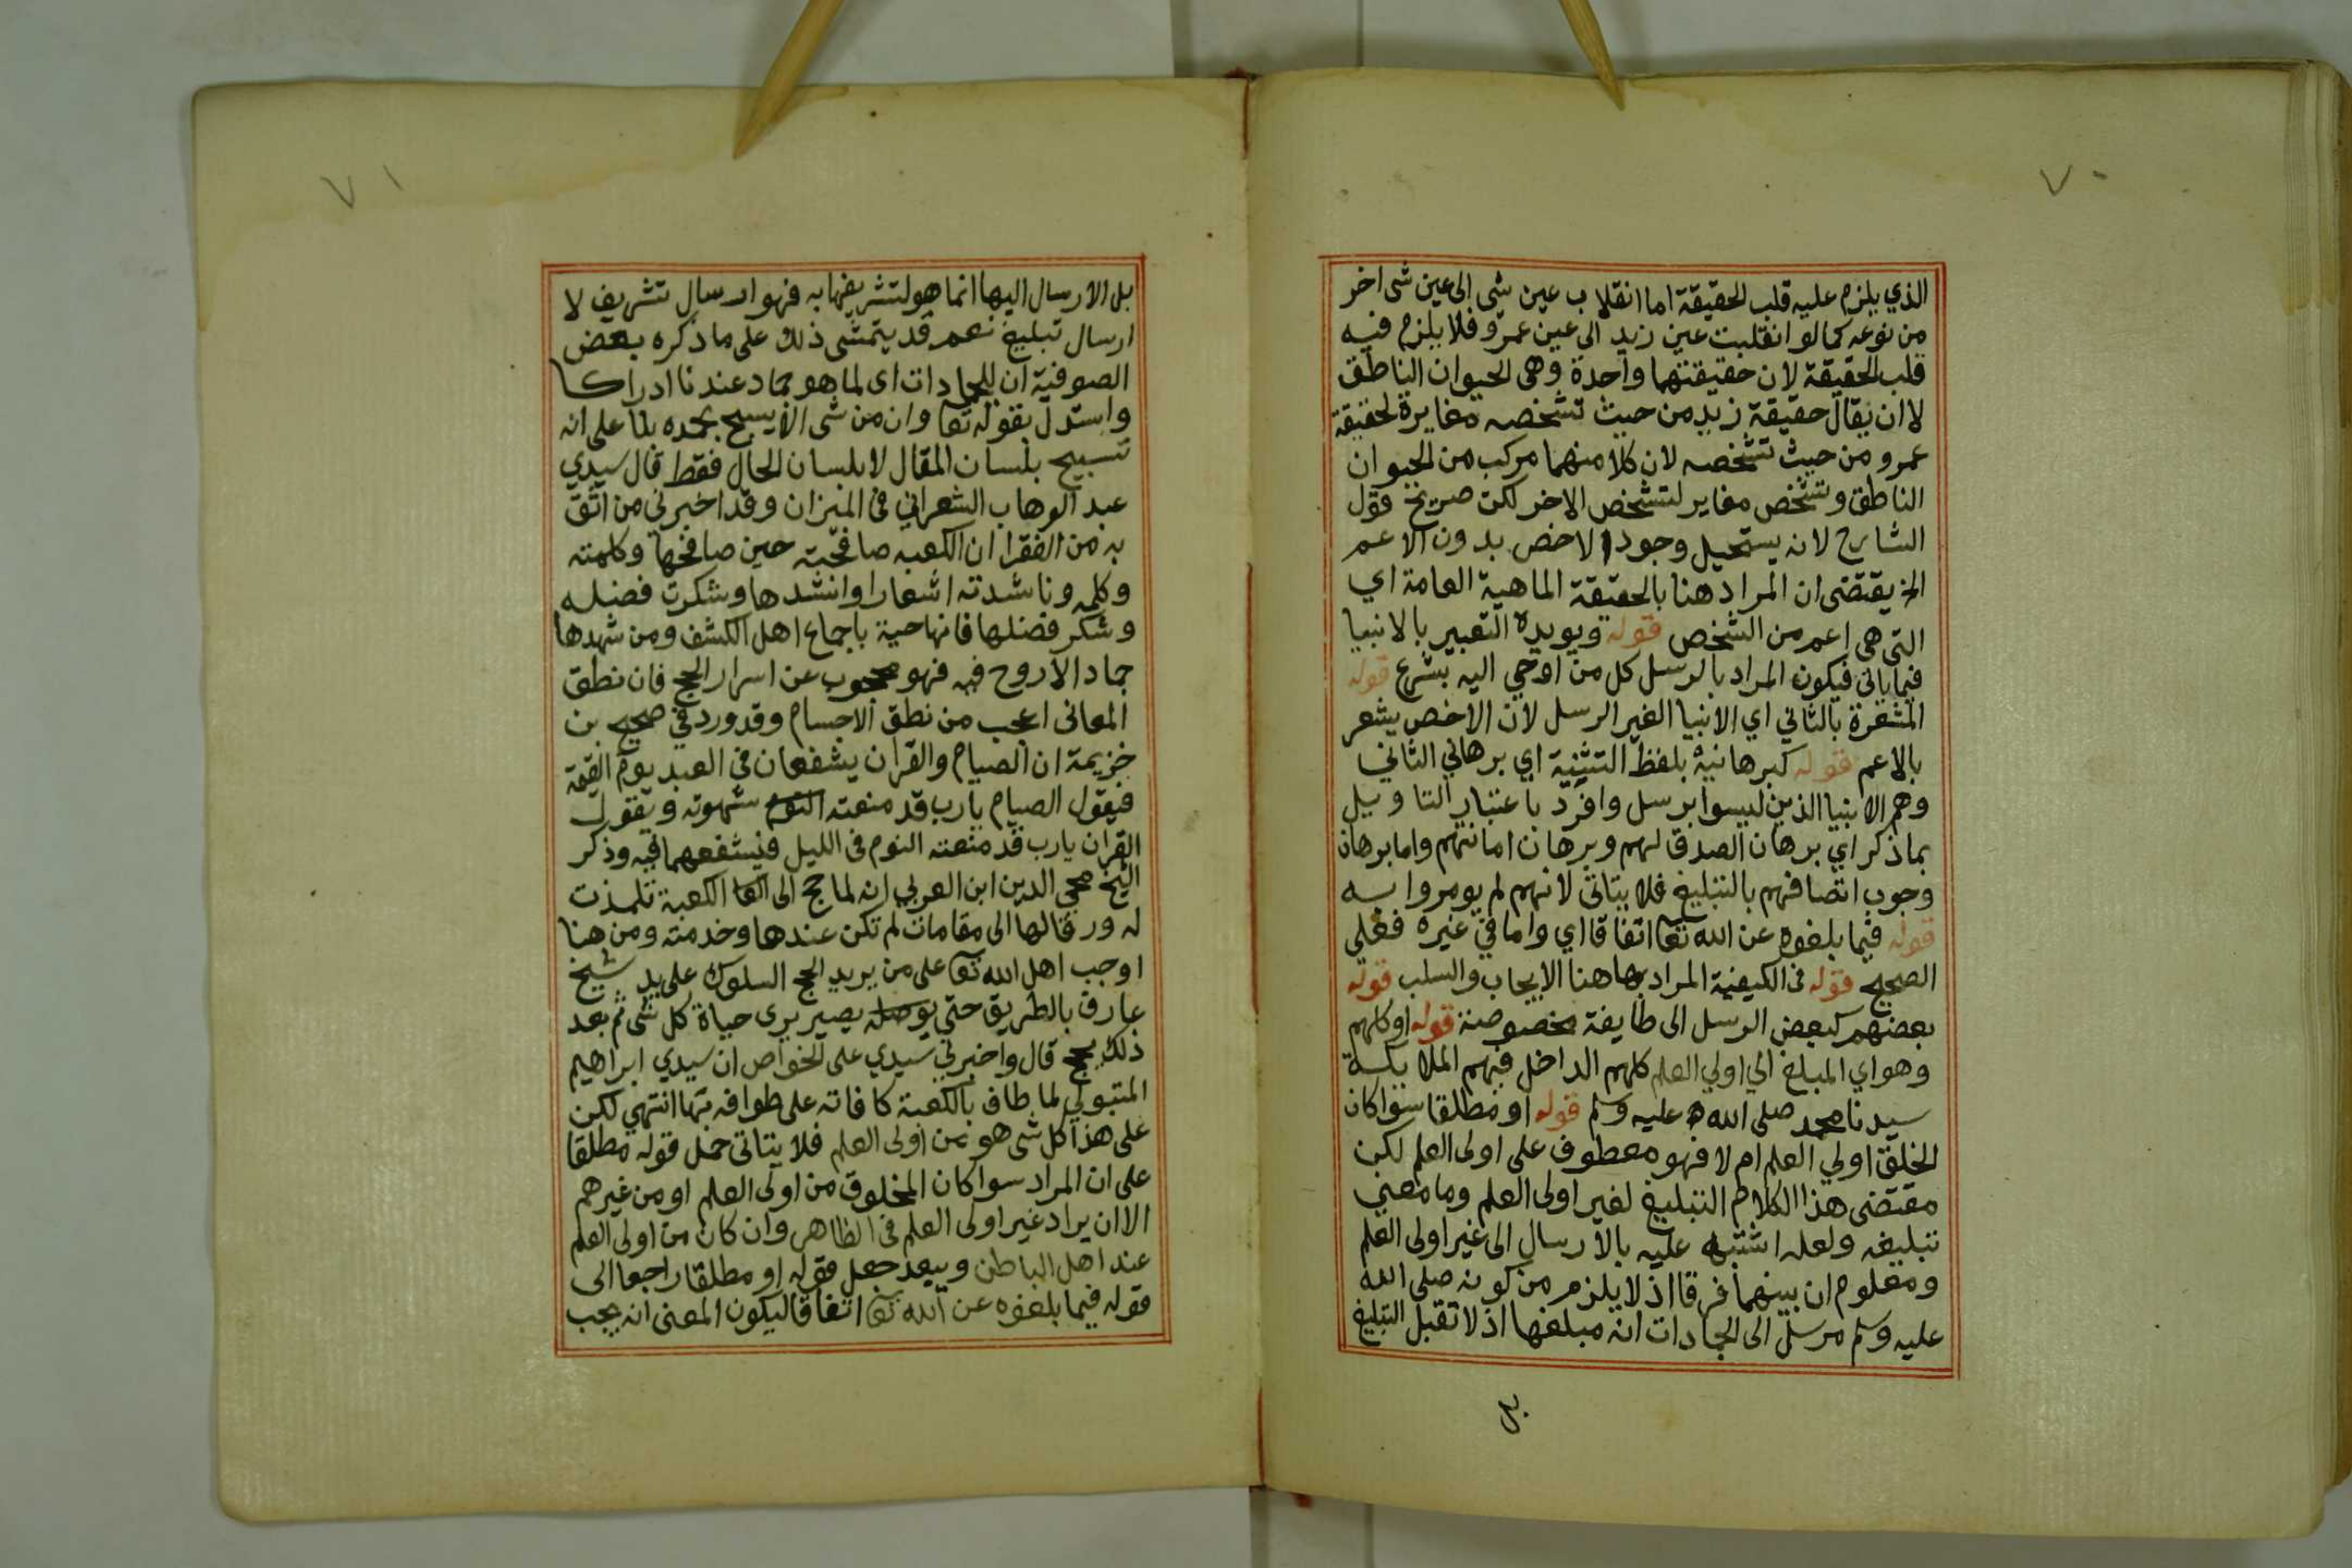 ٧٠
الذي يلزم عليه قلب الحقيقة اما انقلاب عين شى الى عين شى اخر
من نوعه كما لو انقلبت عين زيد الى عين عمرو فلا يلزم فيه
قلب الحقيقة لان حقيقتهما واحدة وهى الحيوان الناطق
لا ان يقال حقيقة زيد من حيث تشخصه مغايرة لحقيقة
عمرو من حيث تشخصه لان كلا منهما مركب من الحيوان
الناطق وتشخص مغاير لتشخص الاخر لكن صريح قول
الشارح لانه يستحيل وجود الاخص بدون الاعم
الخ يقتضى ان المراد هنا بالحقيقة الماهية العامة اي
التى هى اعم من الشخص قوله ويويده التعبير بالانبيا
فيما ياتى فيكون المراد بالرسل كل من اوحي اليه بشرع قوله
المشعرة بالثاني اي الانبيا الغير الرسل لان الاخص يشعر
بالاعم قوله كبرهانيه بلفظ التثنية اي برهاني الثاني
وهم الانبيا الذين ليسوا برسل وافرد باعتبار التاويل
بما ذكر اي برهان الصدق لهم وبرهان امانتهم واما برهان
وجوب اتصافهم بالتبليغ فلا يتاتى لانهم لم يومروا به
قوله فيما بلغوه عن الله تعا اتفاقا اي واما في غيره فعلي
الصحيح قوله فى الكيفية المراد بها هنا الايجاب والسلب قوله
بعضهم كبعض الرسل الى طايفة مخصوصة قوله او كلهم
وهو اي المبلغ الي اولي العلم كلهم الداخل فيهم الملايكة
سيدنا محمد صلى الله عليه وسلم قوله او مطلقا سوا كان
الخلق اولي العلم ام لا فهو معطوف على اولى العلم لكن
مقتضى هذا الكلام التبليغ لغير اولى العلم وما معني
تبليغه ولعله اشتبه عليه بالارسال الى غير اولى العلم
ومعلوم ان بينهما فرقا اذ لا يلزم من كونه صلى الله
عليه وسلم مرسل الى الجمادات انه مبلغها اذ لا تقبل التبليغ
بل
٧١
بل الارسال اليها انما هو لتشريفها به فهو ارسال تشريف لا
ارسال تبليغ نعم قد يتمشى ذلك على ما ذكره بعض
الصوفية ان للجمادات اى لما هو جماد عندنا ادراكا
واستدل بقوله تعا وان من شى الا يسبح بحمده بنا على انه
تسبيح بلسان المقال لا بلسان الحال فقط قال سيدي
عبد الوهاب الشعراني فى الميزان وقد اخبرنى من اثق
به من الفقرا ان الكعبه صافحته حين صافحها وكلمته
وكلمه وناشدته اشعارا وانشدها وشكرت فضله
وشكر فضلها فانها حية باجماع اهل الكشف ومن شهدها
جمادا لا روح فيه فهو محجوب عن اسرار الحج فان نطق
المعانى اعجب من نطق الاجسام وقد ورد في صحيح بن
خزيمة ان الصيام والقران يشفعان فى العبد يوم القيمة
فيقول الصيام يارب قد منعته النوم شهوته ويقول
القران يارب قد منعته النوم فى الليل فيشفعهما فيه وذكر
الشيخ محي الدين ابن العربي انه لما حج الى الكعبة تلمذت
له ورقا لها الى مقامات لم تكن عندها وخدمته ومن هنا
اوجب اهل الله تعا على من يريد الحج السلوك على يد شيخ
عارف بالطريق حتي يوصله يصير يرى حياة كل شى ثم بعد
ذلك يحج قال واخبرني سيدي على الخواص ان سيدي ابراهيم
المتبولي لما طاف بالكعبة كافاته على طوافه بها انتهي لكن
على هذا كل شى هو من اولى العلم فلا يتاتى حمل قوله مطلقا
على ان المراد سوا كان المخلوق من اولى العلم او من غيرهم
الا ان يراد غير اولى العلم فى الظاهر وان كان من اولى العلم
عند اهل الباطن ويبعد جعل قوله او مطلقا راجعا الى
قوله فيما بلغوه عن الله تعا اتفاقا ليكون المعنى انه يجب